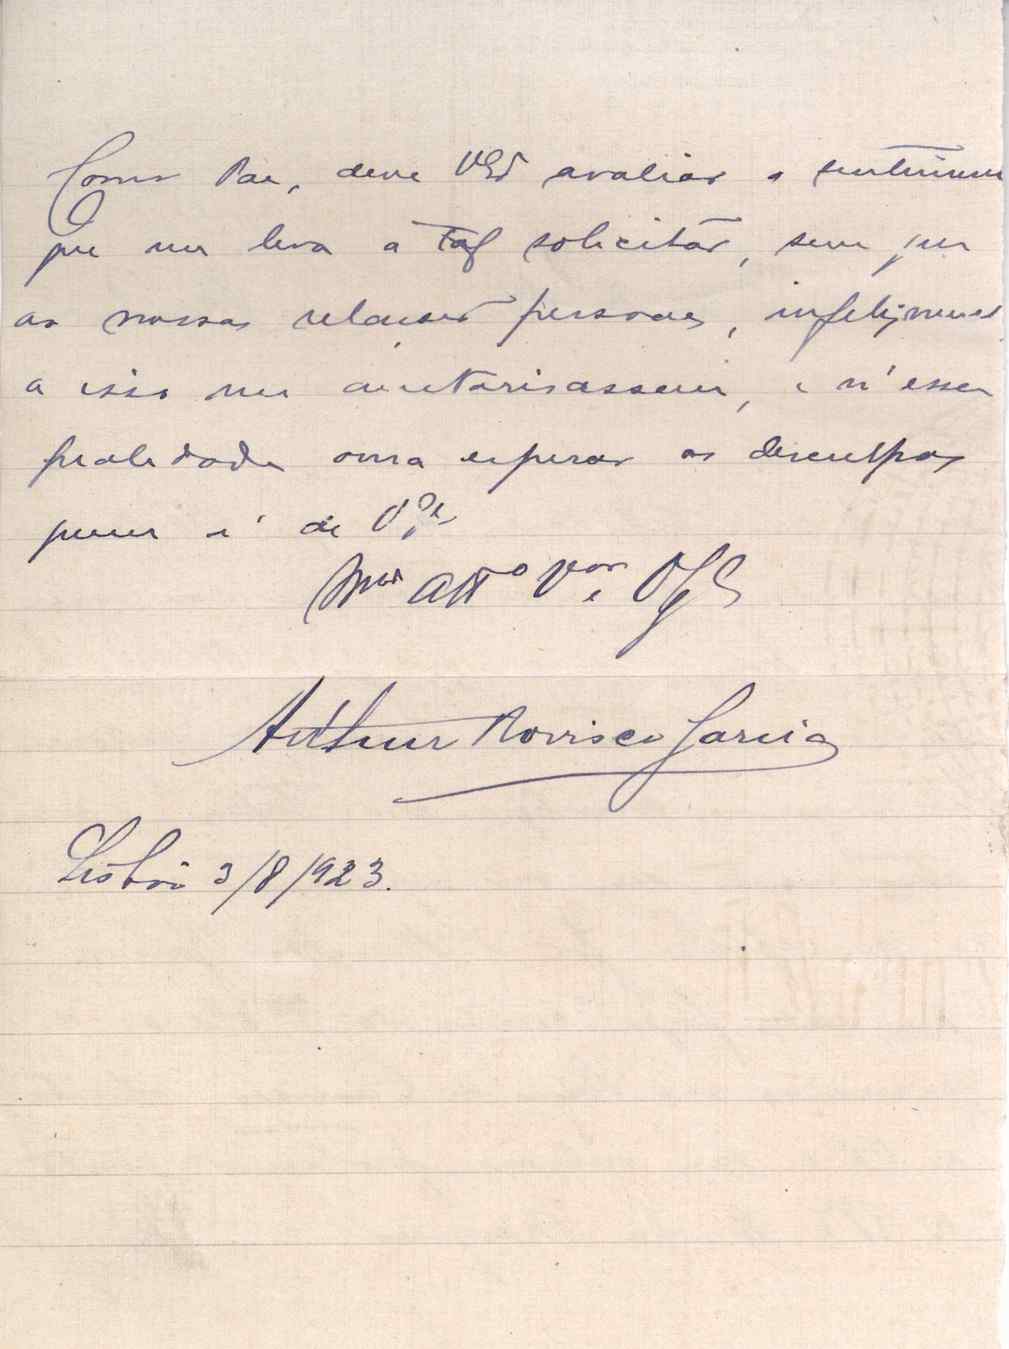 Como Pae, deve VExª avaliar o sentimento
que me leva a tal solicitar, sem que
as nossas relações pessoaes, infelizmente
a isso me auctorisassem, e n'essa
qualidade ousa esperar as desculpas
quem é de V. Exª
Mto Attº Vor e Obgº
Arthur Rovisco Garcia
Lisboa 3/8/923.